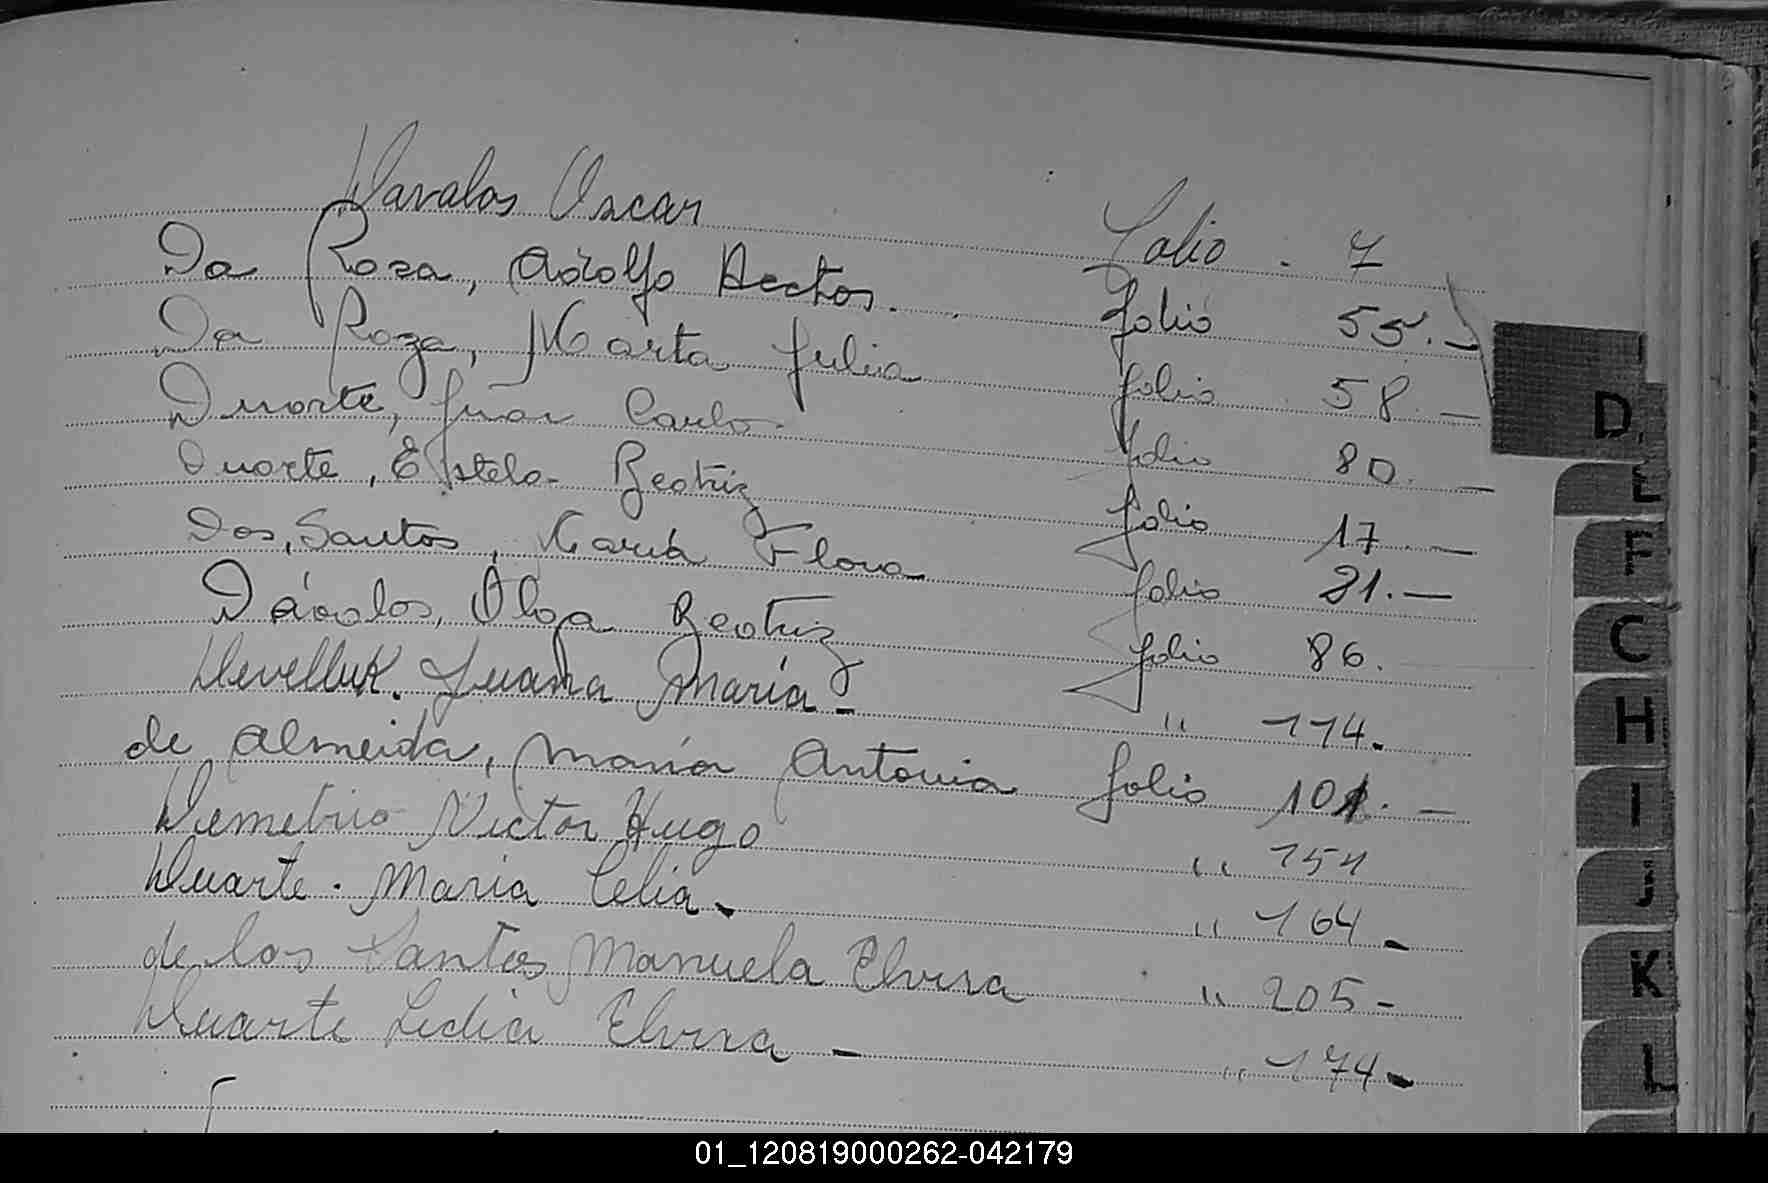 Davalos Oscar Folio . 7
Da Roza, Adolfo Hector. folio 55.-
Da Roza, Marta Julia folio 58.-
Duarte, Juan Carlos folio 80.-
Duarte, Estela Beatriz folio 17.-
Dos, Santos, María Flora folio 21.-
Dávalos, Olga Beatriz folio 86.
Develluk. Juana María- " 114.
de Almeida, María Antonia folio 101.-
Demetrio Victor Hugo " 151
Duarte. Maria Celia- " 164-
de los Santos Manuela Elvira " 205-
Duarte Lidia Elvira - " 174-
D
E
F
C
H
I
J
K
L
01_120819000262-042179